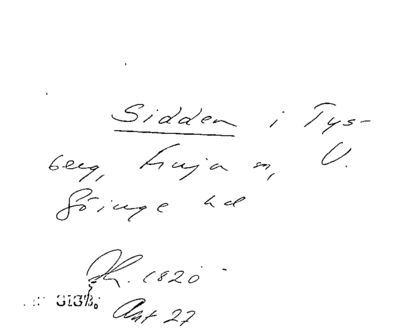 Sidden i Tys-
berg, Finja sn, V.
Göinge hd
1820
Ant 27